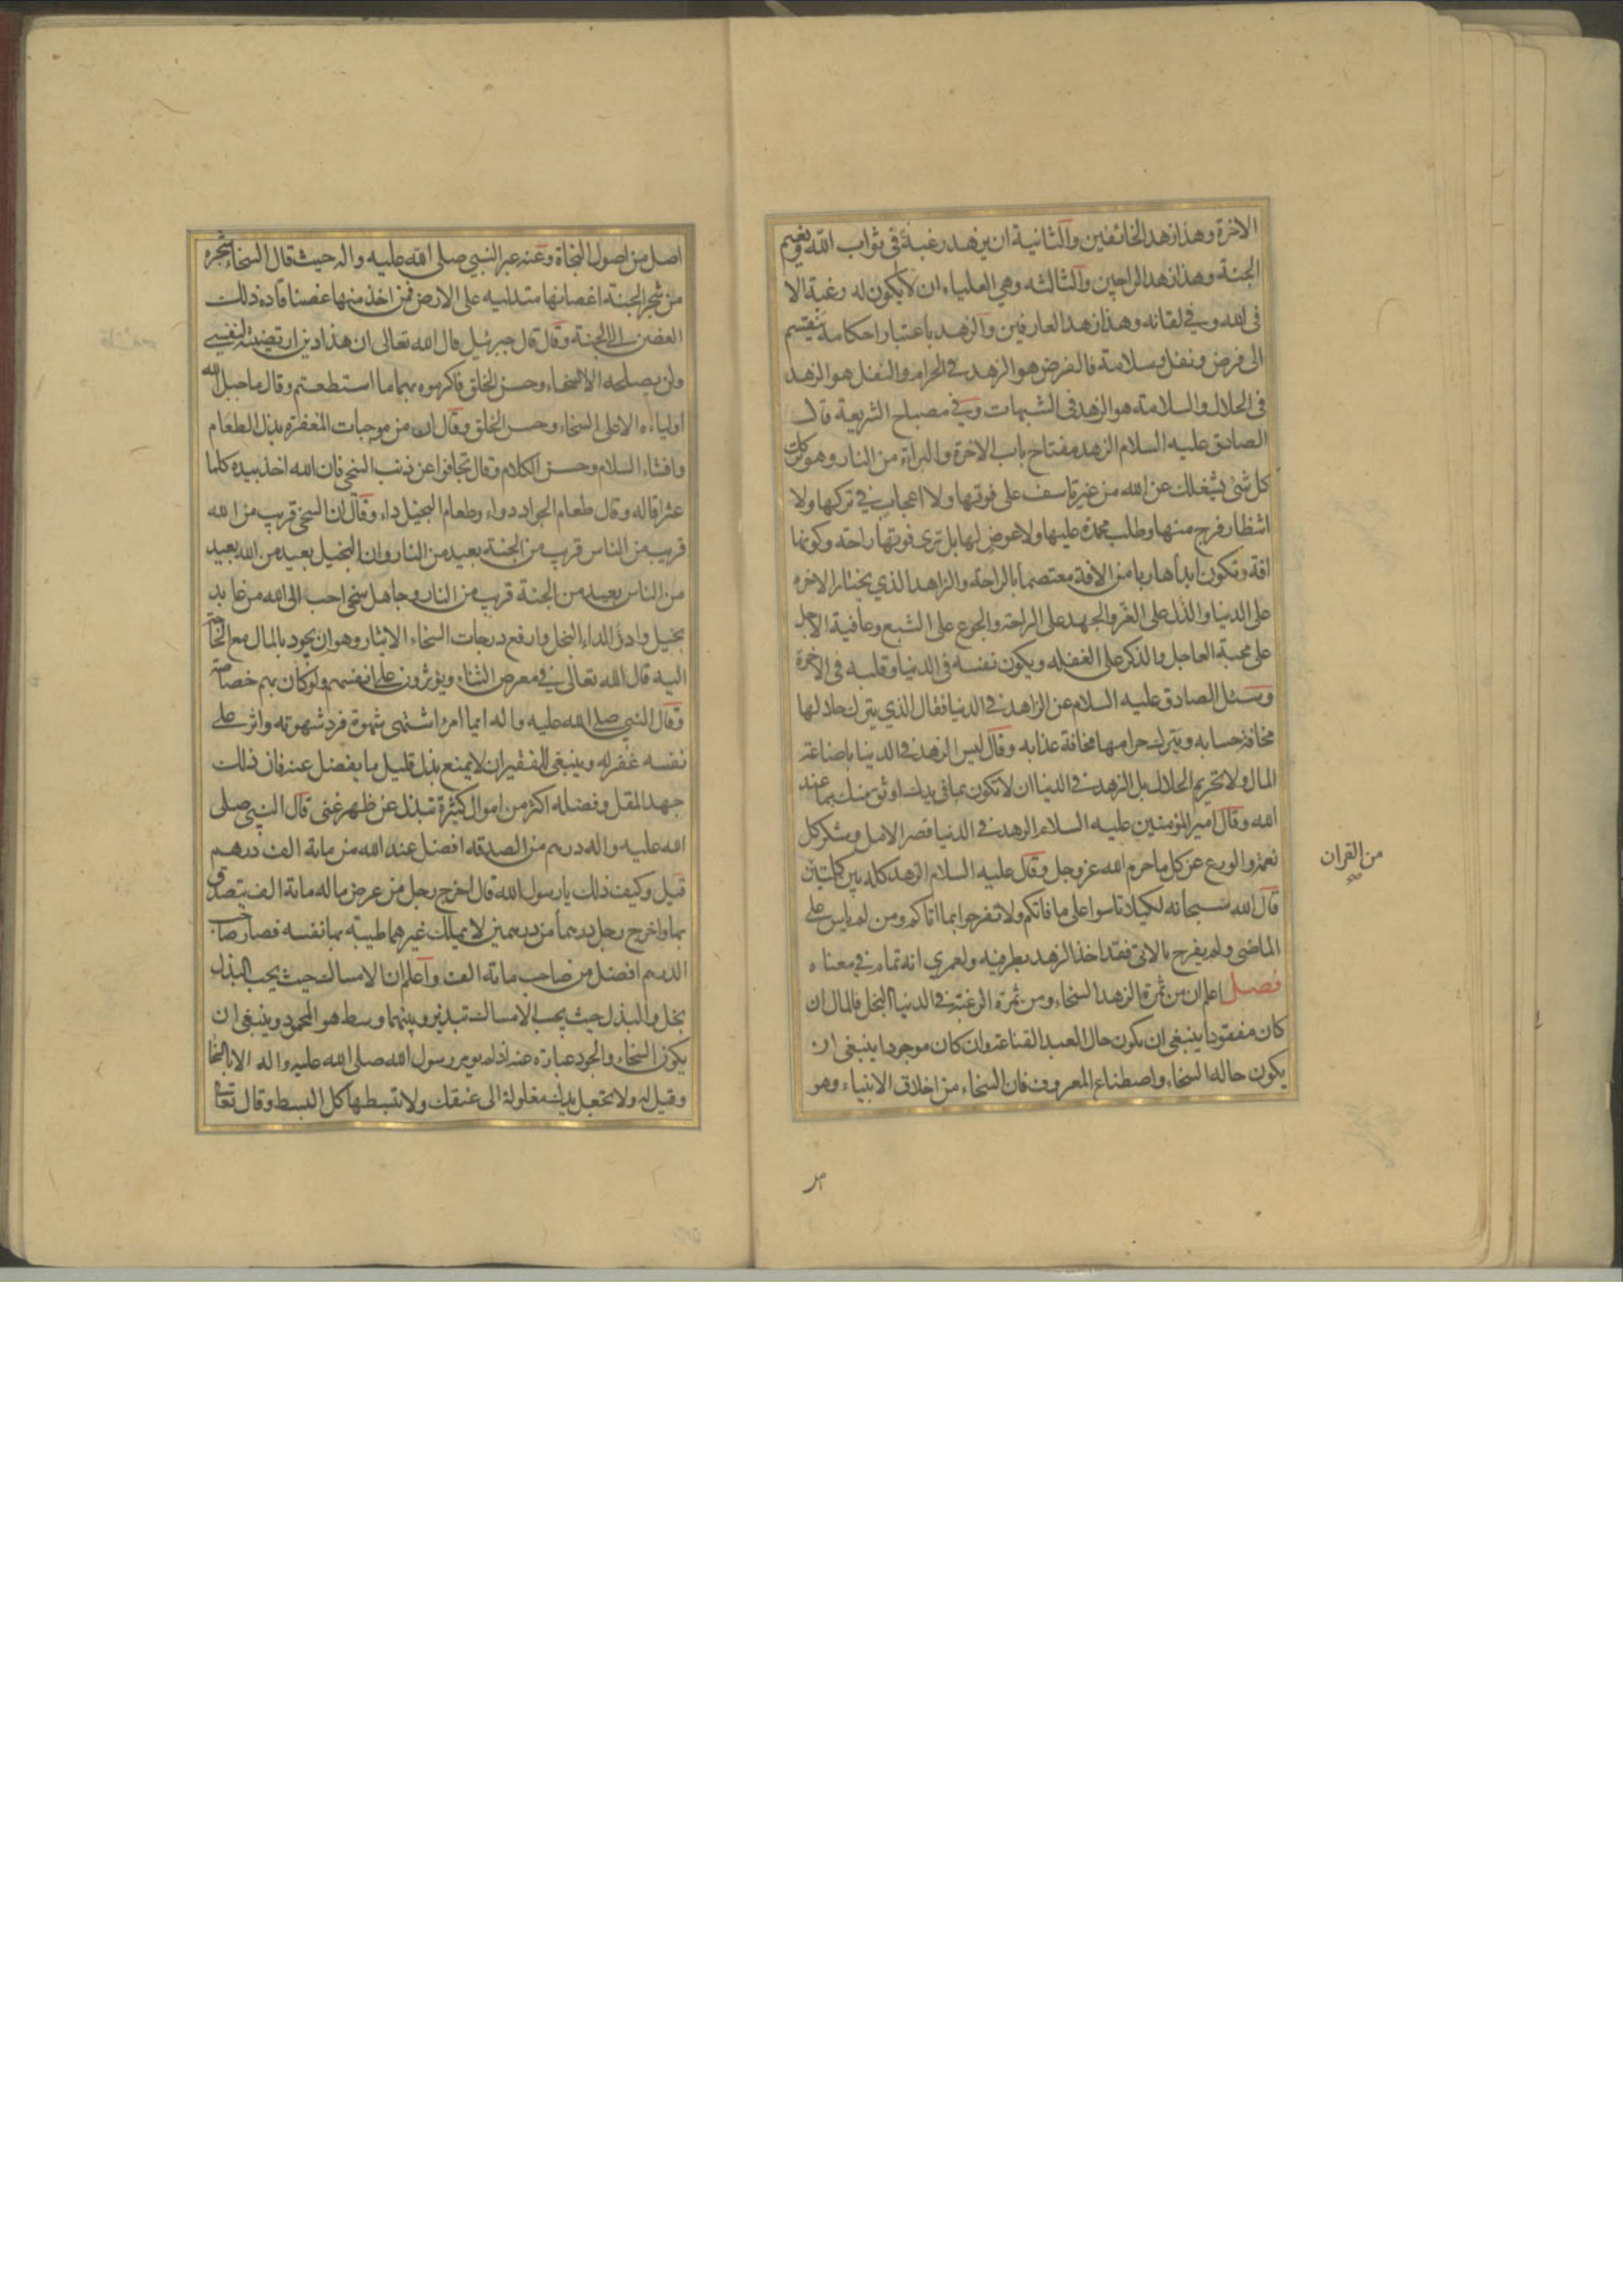 الاخرة وهذا زهد الخائفين والثانية ان يزهد رغبة في ثواب الله ونعيم
الجنة وهذا زهد الراجين والثالثه وهي العلياء ان لا يكون له رغبة الا
في الله وفي لقائه وهذا زهد العارفين والزهد باعتبار احكامه ينقسم
الى فرض ونفل وسلامة فالفرض هو الزهد في الحرام والنفل هو الزهد
في الحلال والسلامة هو الزهد في الشبهات وفي مصباح الشريعة قال
الصادق عليه السلام الزهد مفتاح باب الاخرة والبراءة من النار وهو تركك
كل شئ يشغلك عن الله من غير تاسف على فوتها ولا اعجاب في تركها ولا
انتظار فرج منها وطلب محمدة عليها ولا عوض لها بل ترى فوتها راحة وكونها
افة وتكون ابدا هاربا من الافة معتصما بالراحة والزاهد الذي يختار الاخرة
على الدنيا والذل على العز والجهد على الراحة والجوع على الشبع وعافية الاجل
على محبة العاجل والذكر على الغفله ويكون نفسه في الدنيا وقلبه في الاخرة
وسئل الصادق عليه السلام عن الزاهد في الدنيا فقال الذي يترك حلالها
مخافة حسابه ويترك حرامها مخافة عذابه وقال ليس الزهد في الدنيا باضاعة
المال ولا تحريم الحلال بل الزهد في الدنيا ان لا تكون بما في يديك اوثق منك بما عند
الله وقال امير المؤمنين عليه السلام الزهد في الدنيا قصر الامل وشكر كل
نعمة والورع عن كل ما حرم الله عز وجل وقال عليه السلام الزهد كله بين كلمتين
من القران
قال الله سبحانه لكيلا تاسوا على ما فاتكم ولا تفرحوا بما اتاكم ومن لم ياس على
الماضي ولم يفرح بالاتي فقد اخذ الزهد بطرفيه ولعمري انه تمام في معناه
فصل اعلم ان من ثمرة الزهد السخاء ومن ثمرة الرغبة في الدنيا البخل فالمال ان
كان مفقودا ينبغي ان يكون حال العبد القناعة وان كان موجودا ينبغي ان
يكون حاله السخاء واصطناع المعروف فان السخاء من اخلاق الانبياء وهو
اصل من اصول النجاة وعنه عبر النبي صلى الله عليه واله حيث قال السخاء شجرة
من شجر الجنة اغصانها متدلية على الارض فمن اخذ منها غصنا قاده ذلك
الغصن الى الجنة وقال قال جبرئيل قال الله تعالى ان هذا دين ارتضيته لنفسي
ولن يصلحه الا السخاء وحسن الخلق فاكرموه بهما ما استطعتم وقال ما جبل الله
اولياءه الا على السخاء وحسن الخلق وقال ان من موجبات المغفرة بذل الطعام
وافشاء السلام وحسن الكلام وقال تجافوا عن ذنب السخي فان الله اخذ بيده كلما
عثر اقاله وقال طعام الجواد دواء وطعام البخيل داء وقال ان السخي قريب من الله
قريب من الناس قريب من الجنة بعيد من النار وان البخيل بعيد من الله بعيد
من الناس بعيد من الجنة قريب من النار وجاهل سخي احب الى الله من عابد
بخيل وادوأ الداء البخل وارفع درجات السخاء الايثار وهو ان يجود بالمال مع الحاجة
اليه قال الله تعالى في معرض الثناء ويؤثرون على انفسهم ولو كان بهم خصاصة
وقال النبي صلى الله عليه واله ايما امرء اشتهى شهوة فرد شهوته واثر على
نفسه غفر له وينبغي للفقير ان لا يمنع بذل قليل ما يفضل عنه فان ذلك
جهد المقل وفضله اكثر من اموال كثيرة تبذل عن ظهر غنى قال النبي صلى
الله عليه واله درهم من الصدقه افضل عند الله من مائة الف درهم
قيل وكيف ذلك يا رسول الله قال اخرج رجل من عرض ماله مائة الف يتصدق
بها واخرج رجل درهما من درهمين لا يملك غيرهما طيبة بها نفسه فصار صاحب
الدرهم افضل من صاحب مائة الف واعلم ان الامساك حيث يجب البذل
بخل والبذل حيث يجب الامساك تبذير وبينهما وسط هو المحمود وينبغي ان
يكون السخاء والجود عبارة عنه اذ لم يومر رسول الله صلى الله عليه واله الا بالسخاء
وقيل له ولا تجعل يدك مغلولة الى عنقك ولا تبسطها كل البسط وقال تعالى